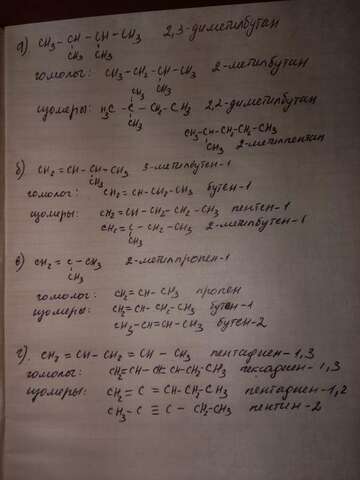 а) CH3 - CH - CH - CH3 2,3-диметилбутан
CH3 CH3
гомологи: CH3 - CH2 - CH - CH3 2-метилбутан
CH3 CH3
изомеры: H3C - C - CH2 - CH3 2,2-диметилбутан
CH3
CH3-CH-CH2-CH2-CH3
CH3 2-метилпентан
б) CH2 = CH - CH - CH3 3-метилбутен-1
CH3
гомолог: CH2 = CH - CH2 - CH3 бутен-1
изомеры: CH2 = CH - CH2 - CH2 - CH3 пентен-1
CH2 = C - CH2 - CH3 2-метилбутен-1
CH3
в) CH2 = C - CH3 2-метилпропен-1
CH3
гомолог: CH2 = CH - CH3 пропен
изомеры: CH2 = CH - CH2 - CH3 бутен-1
CH3 - CH = CH - CH3 бутен-2
г) CH2 = CH - CH2 = CH - CH3 пентадиен-1,3
гомологи: CH2 = CH - CH = CH - CH2 - CH3 гексадиен-1,3
изомеры: CH2 = C = CH - CH2 - CH3 пентадиен-1,2
CH3 - C ≡ C - CH2 - CH3 пентин-2